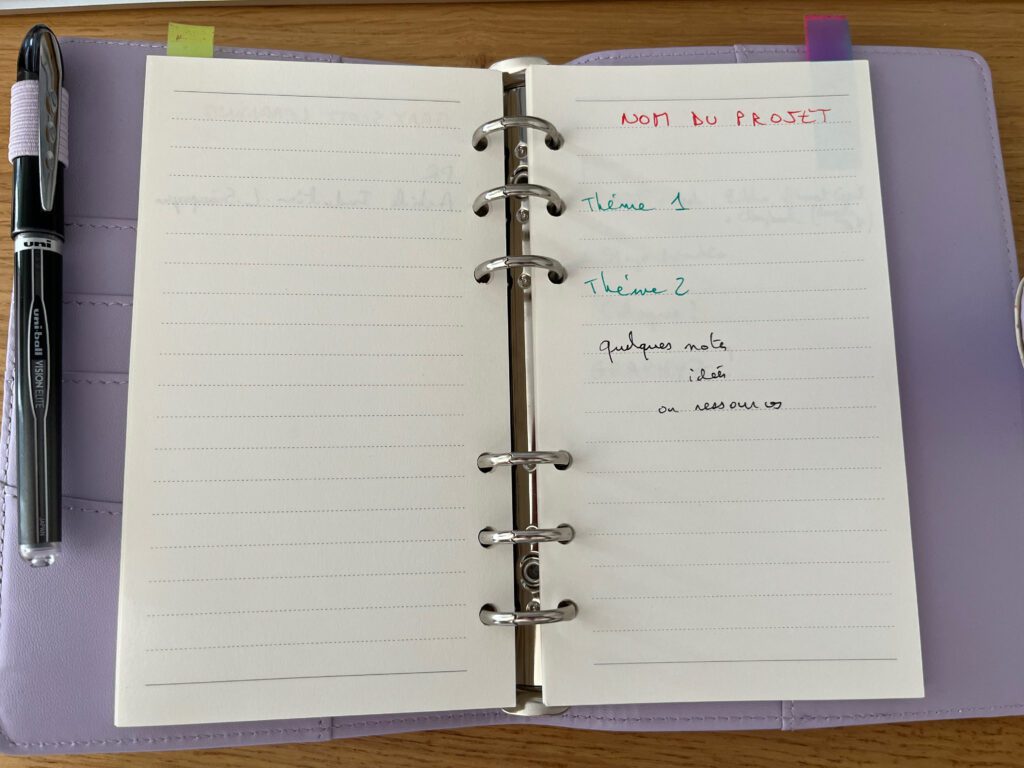 uni
uniball VISION ELITE
NOM DU PROJET
Thème 1
Thème 2
quelques notes
idées
ou ressources